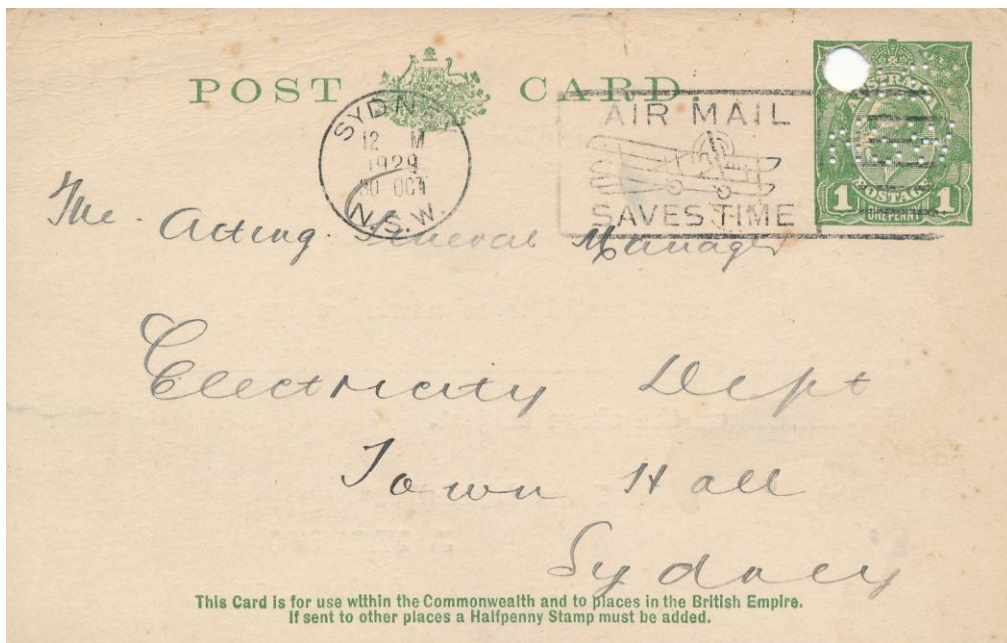 POST CARD.
SYDNEY
12 M
1929
30 OCT
N.S.W.
AIR MAIL
SAVES TIME
AUSTRALIA
POSTAGE
1 ONE PENNY 1
The Acting General Manager
Electricity Dept
Town Hall
Sydney
This Card is for use within the Commonwealth and to places in the British Empire.
If sent to other places a Halfpenny Stamp must be added.